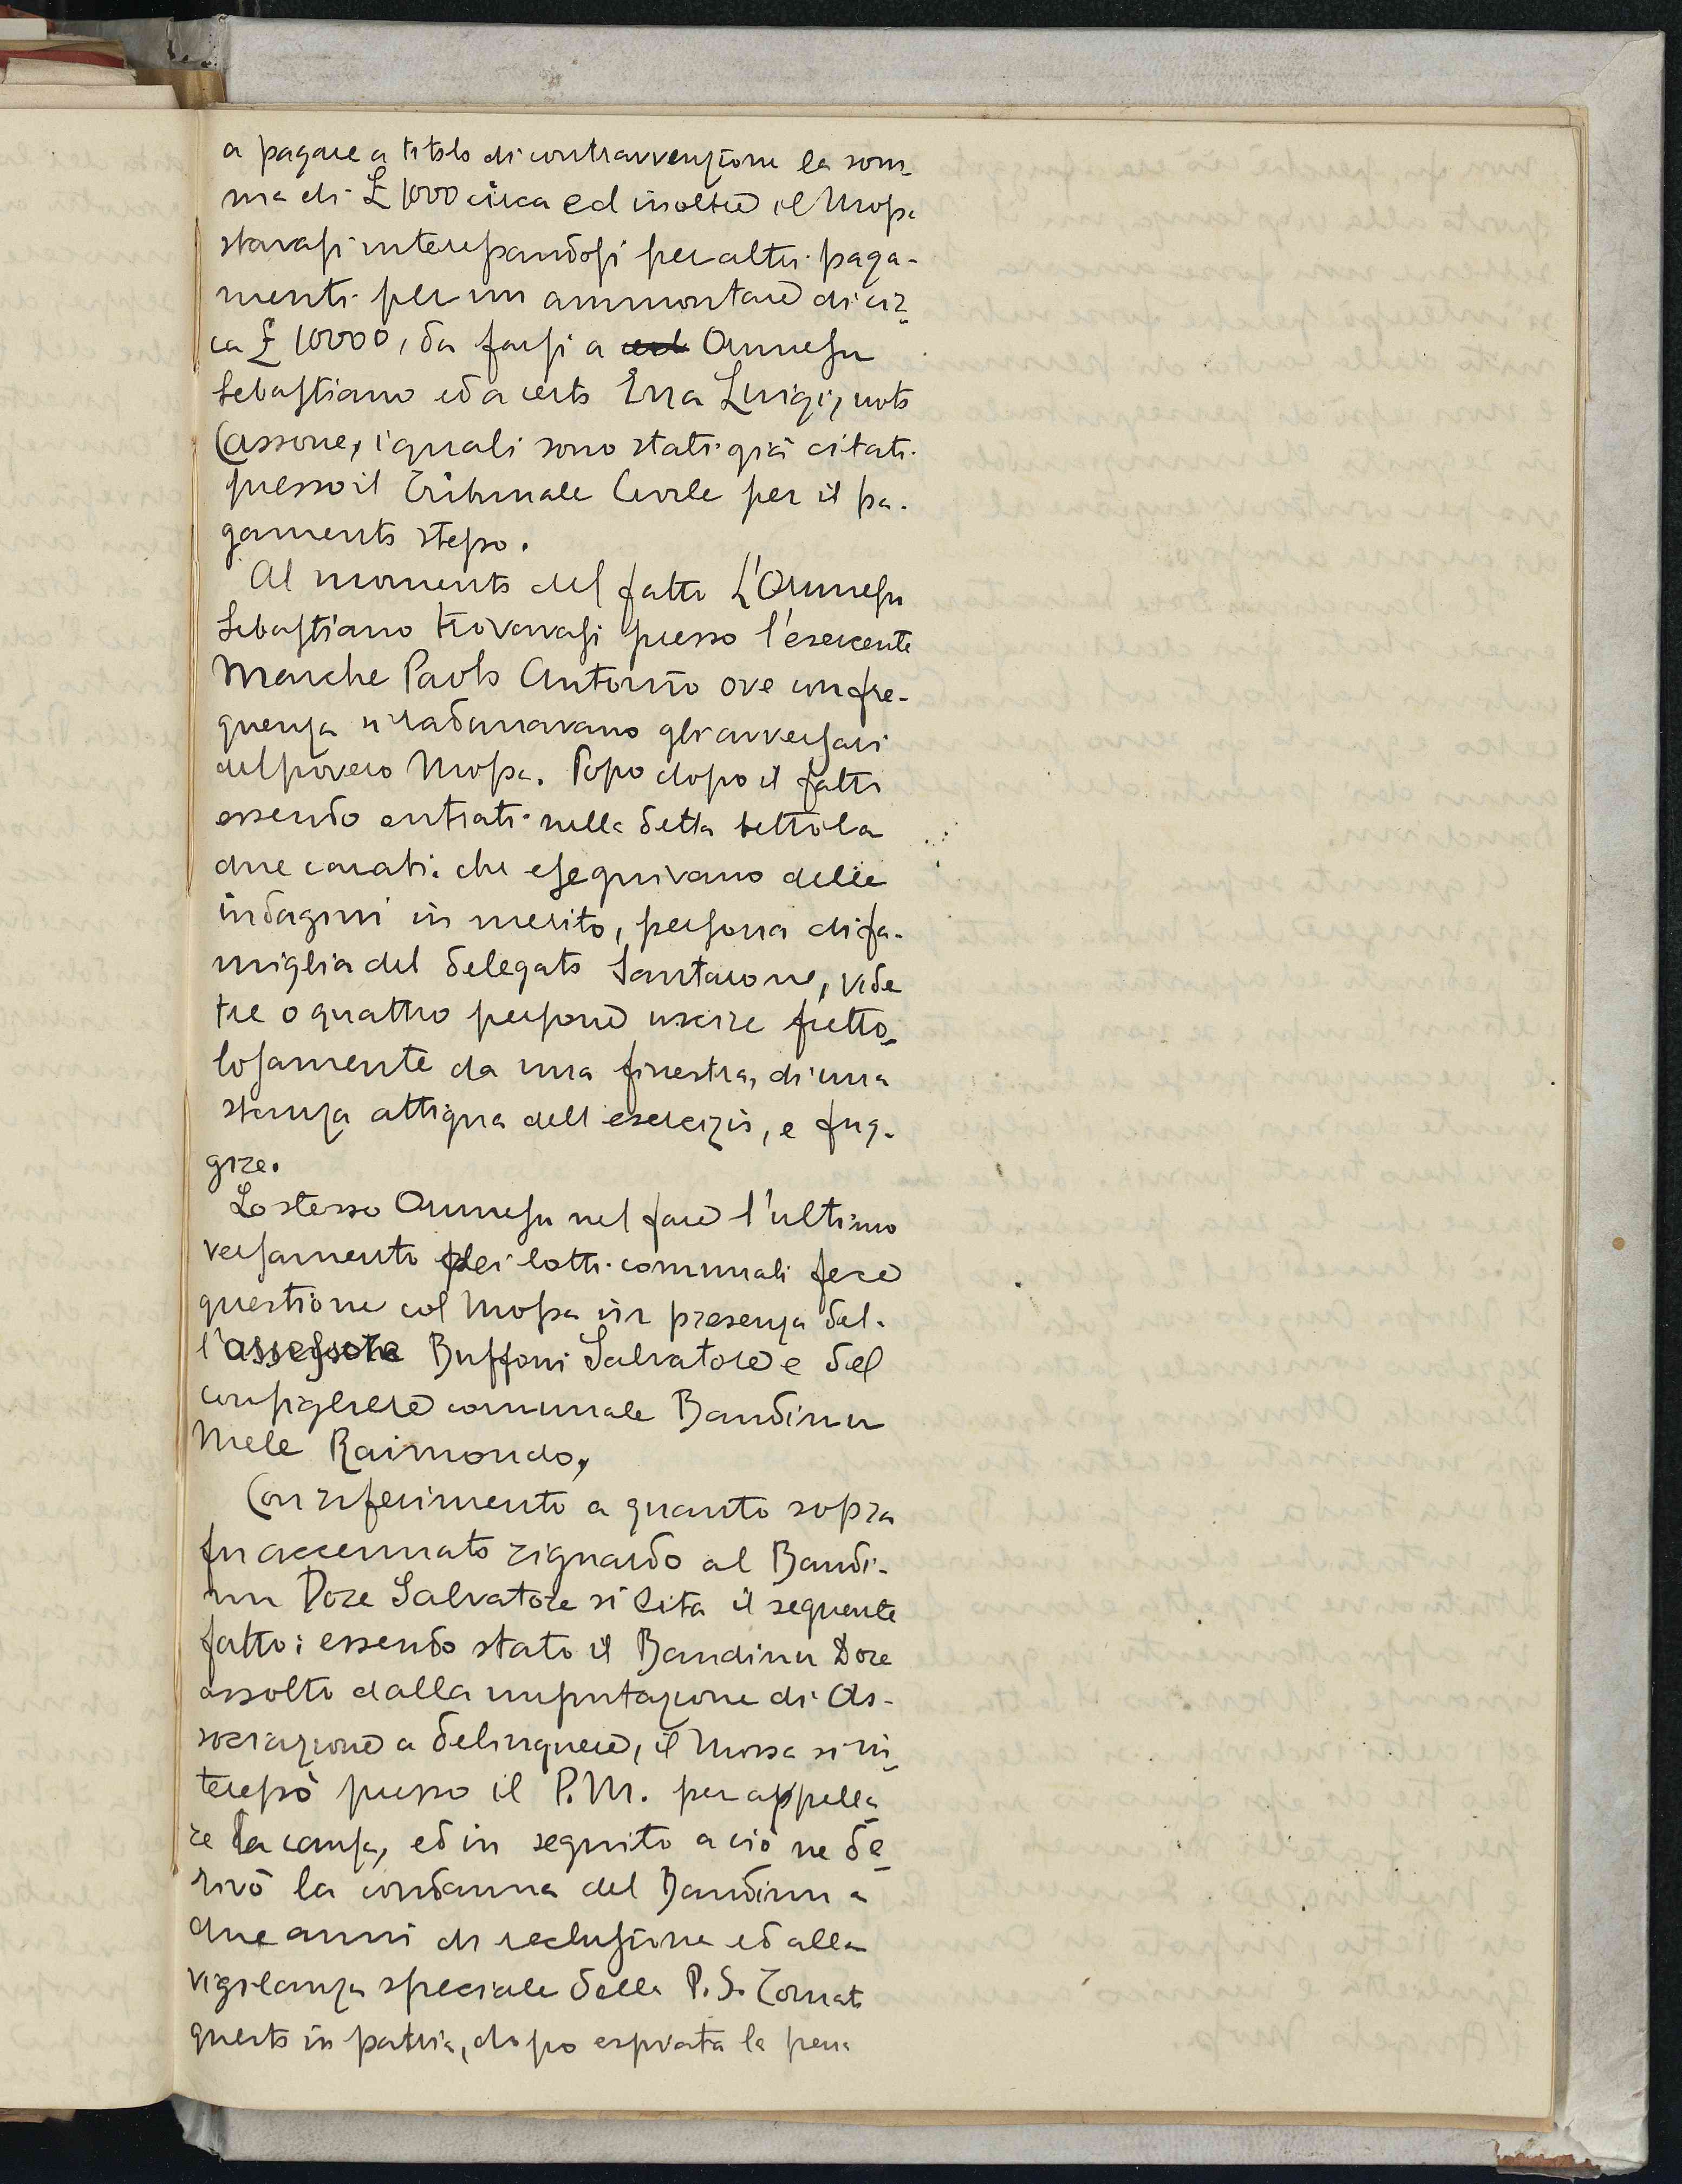 a pagare a titolo di contravvenzione la som-
ma di £ 1000 circa ed inoltre il Mossa
stavasi interessandosi per altri paga-
menti per un ammontare di cir-
ca £ 10000, da farsi a ed Onnesu
Sebastiano ed a certo Erra Luigi, noto
Cassone, i quali sono stati già citati
presso il Tribunale Civile per il pa-
gamento stesso.
Al momento del fatto L'Onnesu
Sebastiano trovavasi presso l'esercente
Marche Paolo Antonio ove con fre-
quenza si radunavano gli avversari
del povero Mossa. Popo dopo il fatto
essendo entrati nella detta bettola
due carati. che eseguivano delle
indagini in merito, persona di fa-
miglia del delegato Santarone, vide
tre o quattro persone uscire fretto-
losamente da una finestra, di una
stanza attigua dell esercizio, e fug-
gire.
Lo stesso Onnesu nel fare l'ultimo
versamento dei lotti comunali fece
questione col Mossa in presenza del-
l'assessore Buffoni Salvatore e del
consigliere comunale Bandinu
Mele Raimondo,
Con riferimento a quanto sopra
fu accennato riguardo al Bandi-
nu Dore Salvatore si cita il seguente
fatto: essendo stato il Bandinu Dore
assolto dalla imputazione di As-
sociazione a delinquere, il Mossa si in-
teressò presso il P.M. per appella-
re la causa, ed in seguito a ciò ne de-
rivò la condanna del Bandinu a
due anni di reclusione ed alla
vigilanza speciale della P.S. Tornato
questo in patria, dopo espiata la pena